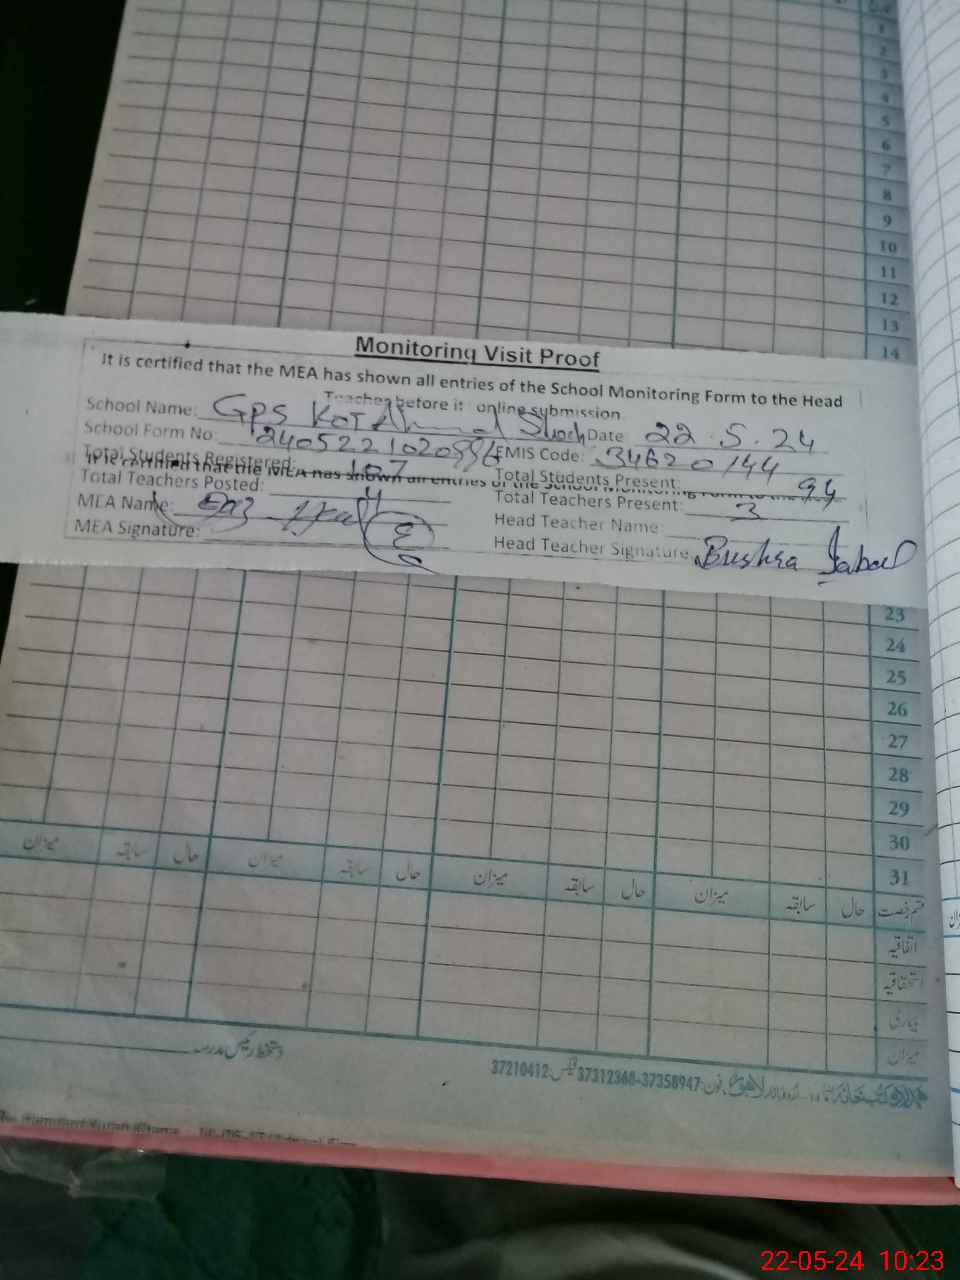 1
2
3
4
5
6
7
8
9
10
11
12
13
14
Monitoring Visit Proof
It is certified that the MEA has shown all entries of the School Monitoring Form to the Head
Teacher before it online submission
School Name: GPS Kot Date 22.5.24
School Form No: EMIS Code: 34620144
Total Students Registered: 107 Total Students Present: 94
It is certified that the MEA has shown all entries of the School Monitoring Form to the
Total Teachers Posted: 4 Total Teachers Present: 3
MEA Name: Head Teacher Name:
MEA Signature: Head Teacher Signature Bushra
23
24
25
26
27
28
29
30
31
حال سابقہ میزان حال سابقہ میزان حال سابقہ میزان حال سابقہ میزان
اتفاقیہ
استحقاقیہ
بیماری
میزان
دستخط رئیس مدرسہ
لاہور فون: 37358947-37312368 فیکس: 37210412
22-05-24 10:23